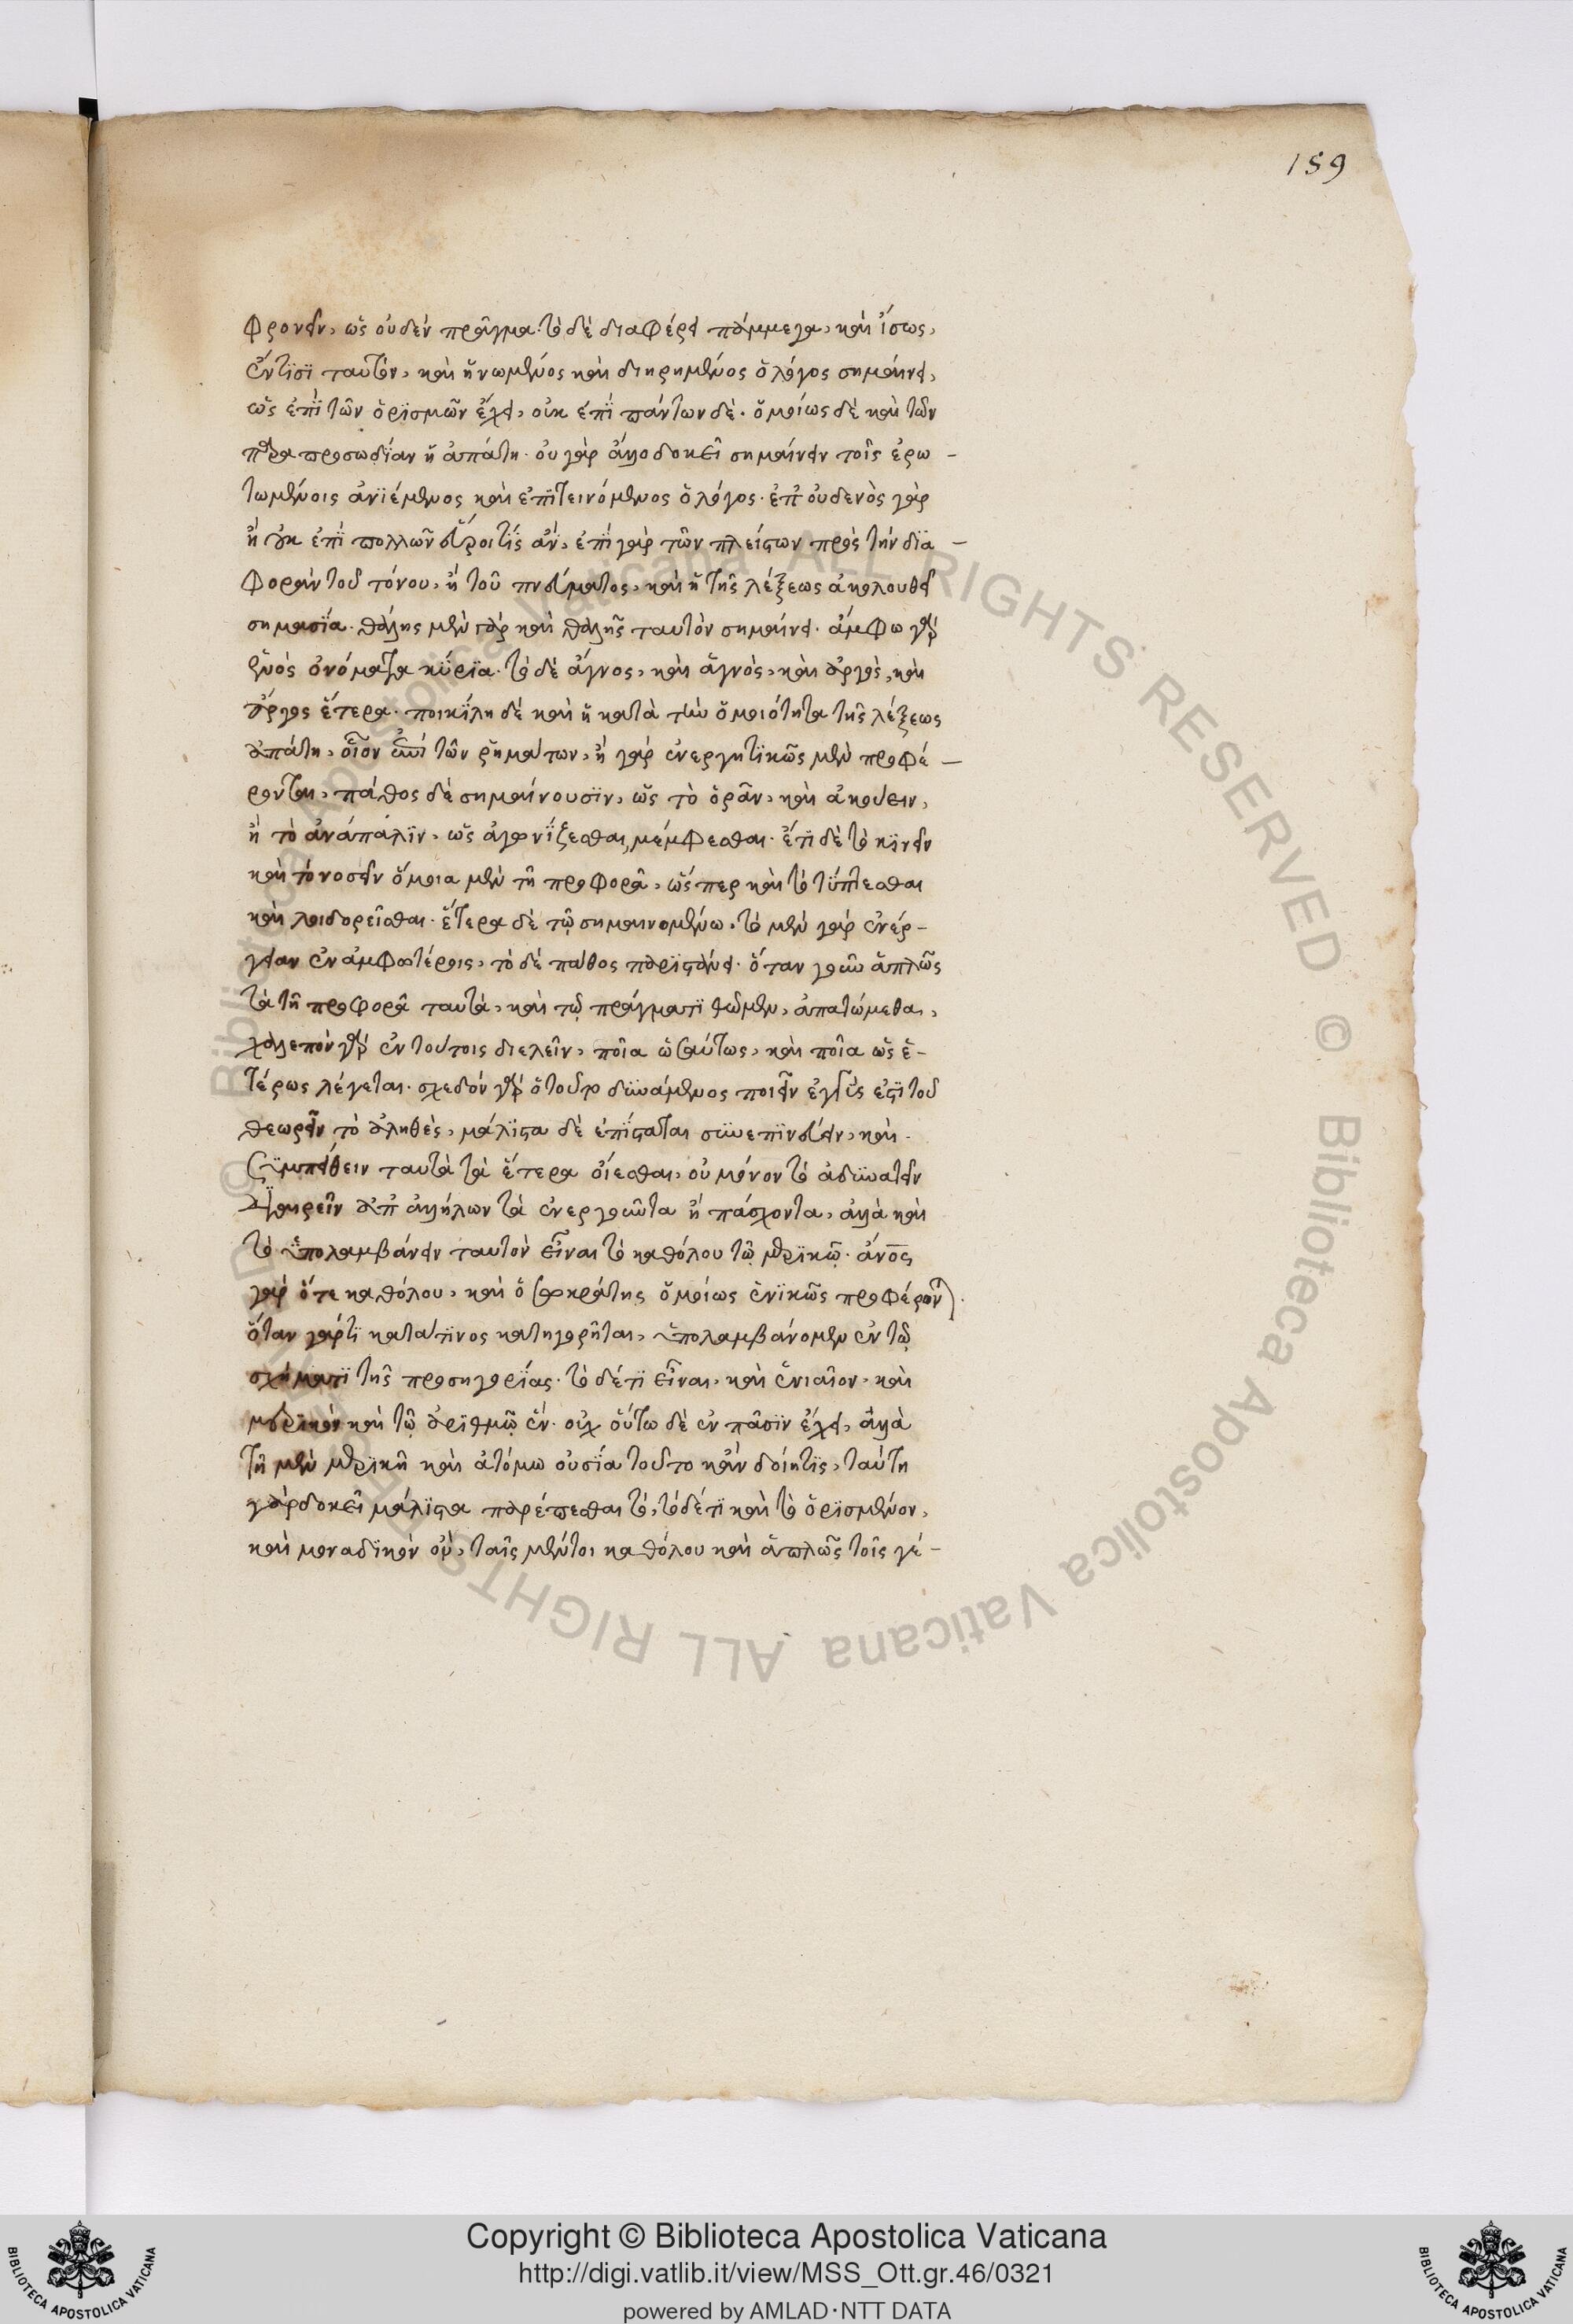 159
φρονεῖν, ὡς οὐδὲν πρᾶγμα. τὸ δὲ διαφέρει πάμμεγα, καὶ ἴσως,
ἔν τισι ταυτόν, καὶ ἡνωμένος καὶ διῃρημένος ὁ λόγος σημαίνει,
ὡς ἐπὶ τῶν ὁρισμῶν ἔχει, οὐκ ἐπὶ πάντων δέ. ὁμοίως δὲ καὶ τῶν
παρὰ προσωδίαν ἡ ἀπάτη. οὐ γὰρ ἄλλο δοκεῖ σημαίνειν τοῖς ἐρω-
τωμένοις ἀνιέμενος καὶ ἐπιτεινόμενος ὁ λόγος. ἐπ' οὐδενὸς γὰρ
ἢ οὐκ ἐπὶ πολλῶν εὕροι τίς ἄν, ἐπὶ γὰρ τῶν πλείστων πρὸς τὴν δια-
φορὰν τοῦ τόνου, ἢ τοῦ πνεύματος, καὶ ἡ τῆς λέξεως ἀκολουθεῖ
σημασία. θάλης μὲν γὰρ καὶ θαλῆς ταυτὸν σημαίνει. ἄμφω γὰρ
ἑνὸς ὀνόματα κύρια. τὸ δὲ ἄγνος, καὶ ἁγνὸς, καὶ ἀργὸς, καὶ
ἄργος ἕτερα. ποικίλη δὲ καὶ ἡ κατὰ τὴν ὁμοιότητα τῆς λέξεως
ἀπάτη, οἷον ἐπὶ τῶν ῥημάτων, ἢ γὰρ ἐνεργητικῶς μὲν προφέ-
ρονται, πάθος δὲ σημαίνουσιν, ὡς τὸ ὁρᾶν, καὶ ἀκούειν,
ἢ τὸ ἀνάπαλιν, ὡς ἀγωνίζεσθαι, μέμφεσθαι. ἔτι δὲ τὸ κινεῖν
καὶ τὸ νοσεῖν ὅμοια μὲν τῇ προφορᾶ, ὥσπερ καὶ τὸ τύπτεσθαι
καὶ λοιδορεῖσθαι. ἕτερα δὲ τῷ σημαινομένω. τὸ μὲν γὰρ ἐνέρ-
γειαν ἐν ἀμφοτέροις, τὸ δὲ πάθος παριστάνει. ὅταν γοῦν ἁπλῶς
τὰ τῇ προφορᾶ ταυτὰ, καὶ τῷ πράγματι θῶμεν, ἀπατώμεθα,
χαλεπὸν γὰρ ἐν τούτοις διελεῖν, ποῖα ὡσαύτως, καὶ ποῖα ὡς ἑ-
τέρως λέγεται. σχεδὸν γὰρ ὁ τοῦτο δυνάμενος ποιεῖν ἐγγύς ἐστι τοῦ
θεωρεῖν τὸ ἀληθὲς, μάλιστα δὲ ἐπίσταται συνεπινεύειν, καὶ
συμπείθειν ταυτὰ τὰ ἕτερα οἴεσθαι, οὐ μόνον τὸ ἀδυνατεῖν
διαιρεῖν ἀπ' ἀλλήλων τὰ ἐνεργοῦντα ἢ πάσχοντα, ἀλλὰ καὶ
τὸ ὑπολαμβάνειν ταυτὸν εἶναι τὸ καθόλου τῷ μερικῷ. ἄνος
γὰρ ὅτε καθόλου, καὶ ὁ σωκράτης ὁμοίως ἑνικῶς προφέρονται.
ὅταν γάρ τι κατά τινος κατηγορῆται, ὑπολαμβάνομεν ἐν τῷ
σχήματι τῆς προσηγορίας. τὸ δέ τι εἶναι, καὶ ἑνιαῖον, καὶ
μερικὸν καὶ τῷ ἀριθμῷ ἕν. οὐχ οὕτω δὲ ἐν πᾶσιν ἔχει, ἀλλὰ
τῇ μὲν μερικῇ καὶ ἀτόμω οὐσία τοῦτο κἂν δοίη τις, ταύτη
γὰρ δοκεῖ μάλιστα παρέπεσθαι τό, τὸ δέ τι καὶ τὸ ὁρισμένον,
καὶ μοναδικὸν ὄν, ταῖς μέντοι καθόλου καὶ ἁπλῶς τοῖς γέ-
Copyright © Biblioteca Apostolica Vaticana
http://digi.vatlib.it/view/MSS_Ott.gr.46/0321
powered by AMLAD·NTT DATA